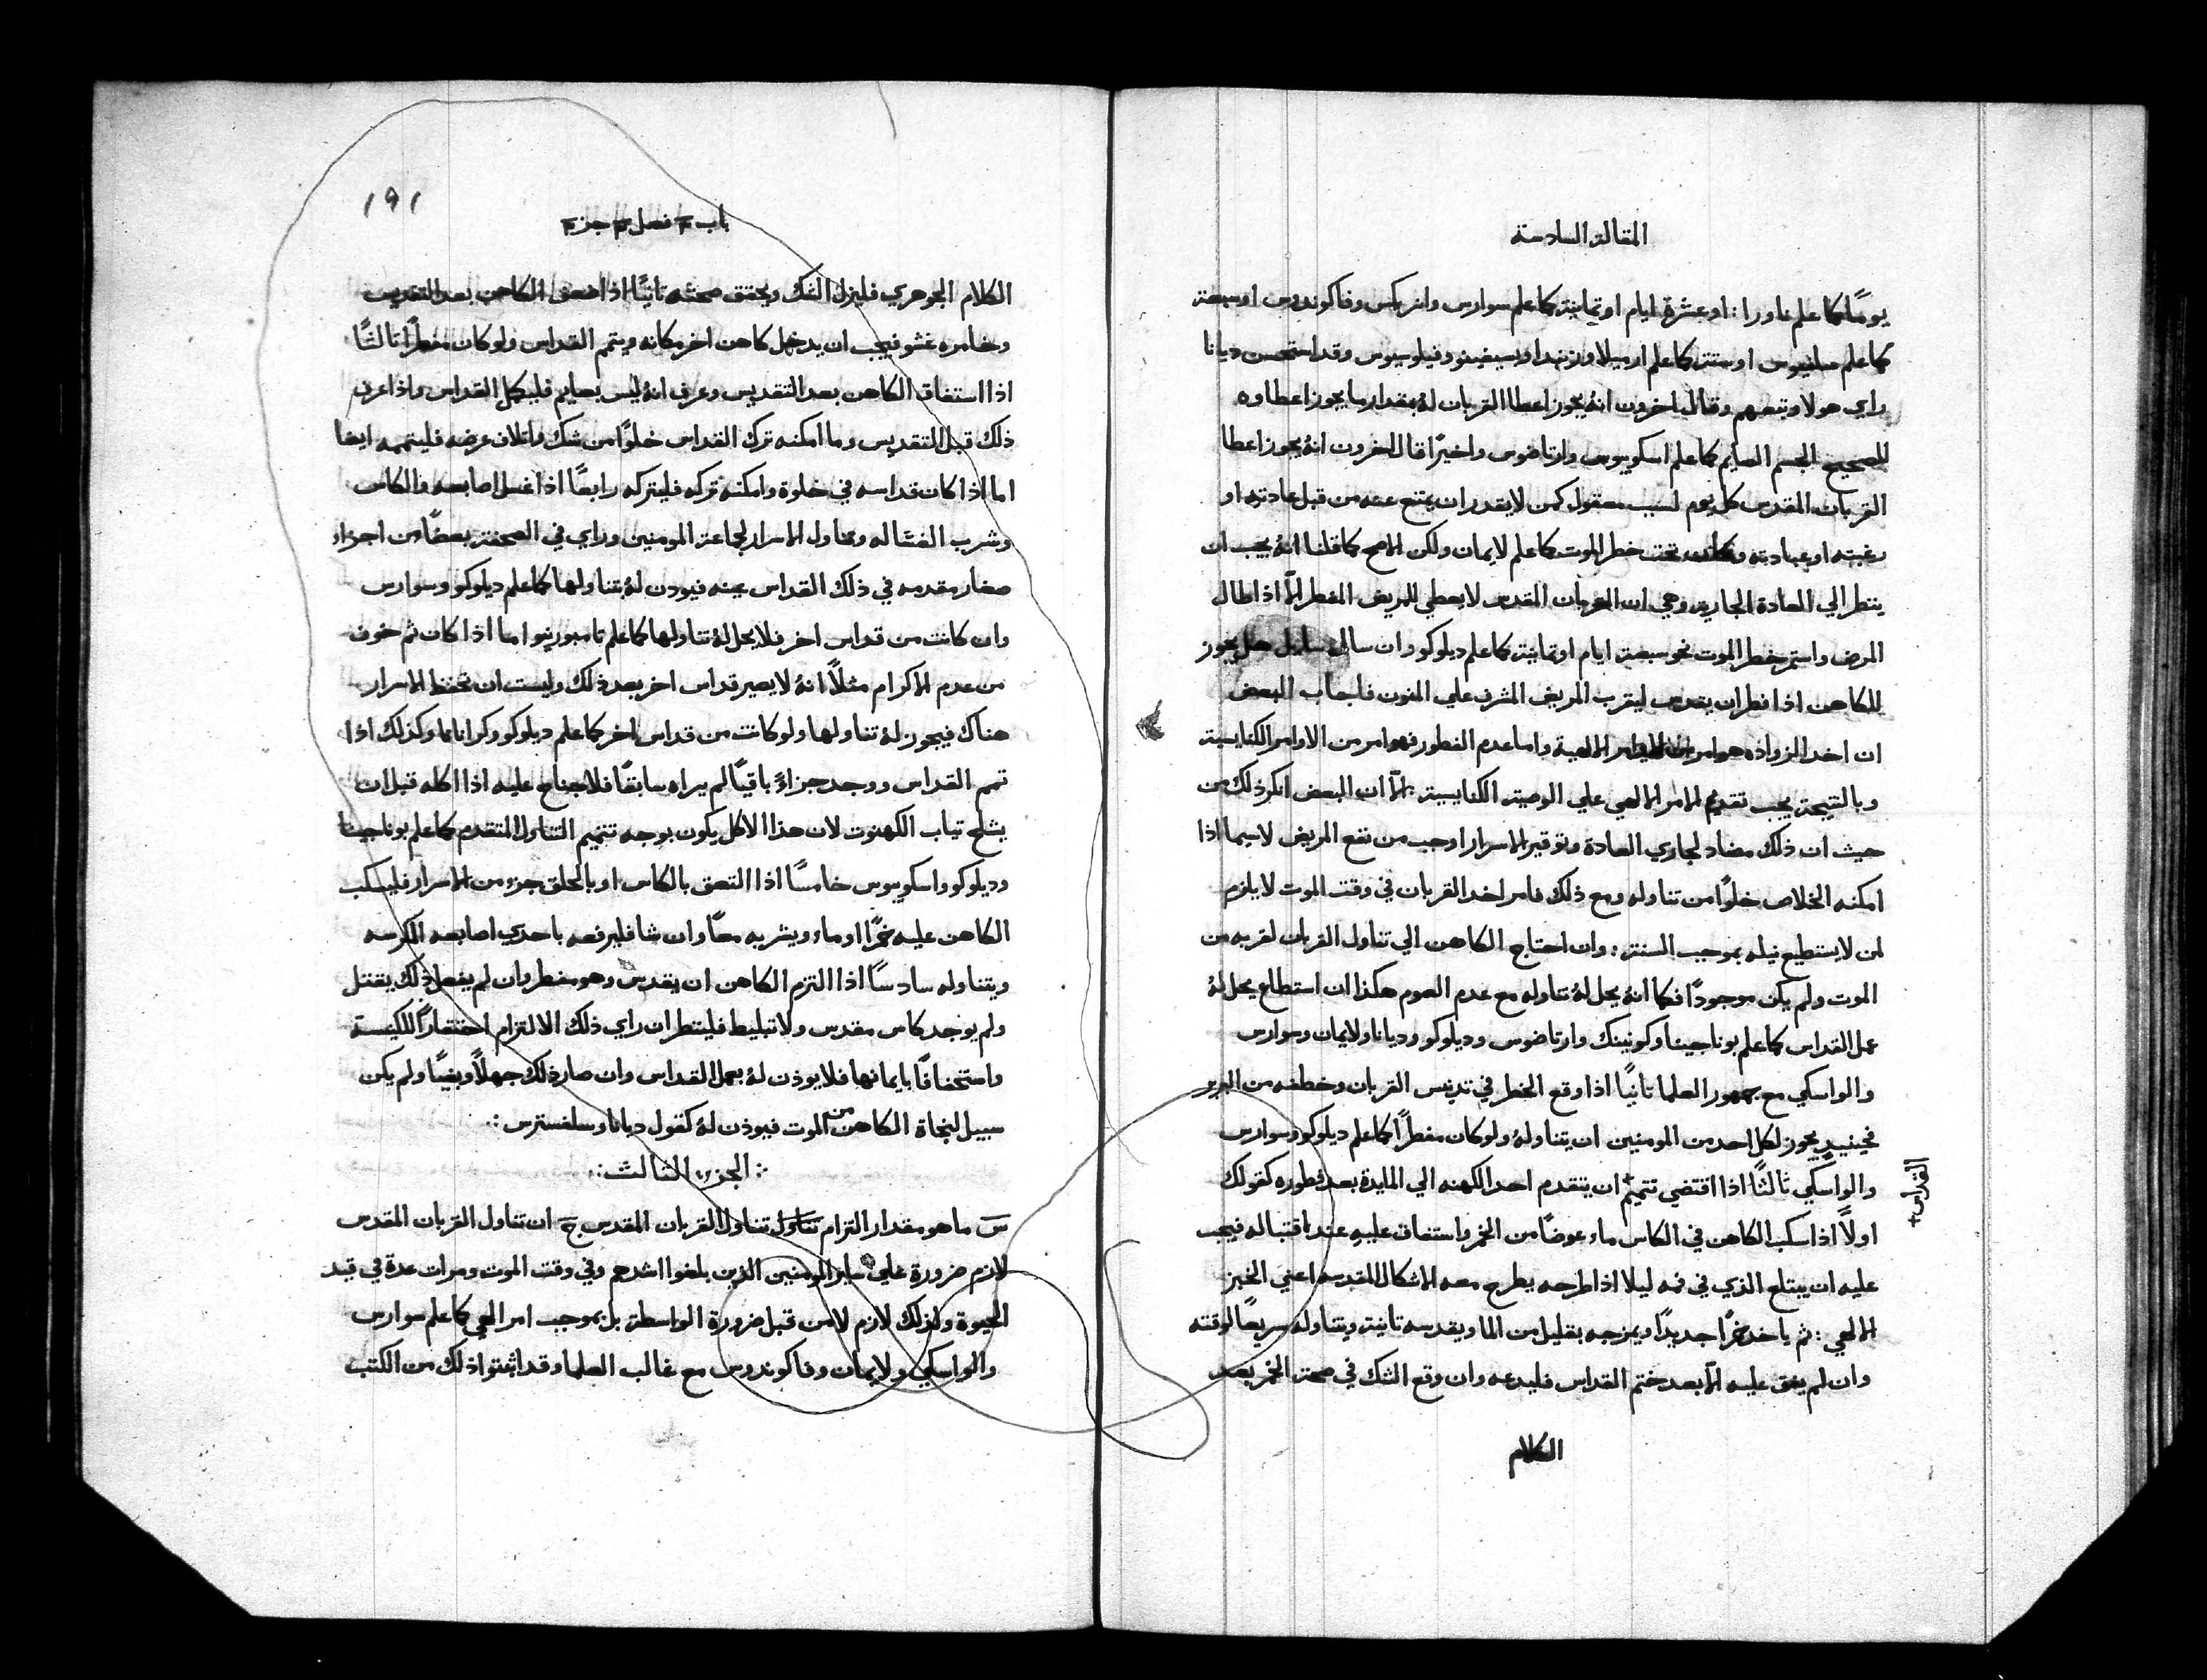 المقالة السادسة
يومًا كما علم ناورا: او عشرة ايام او ثمانية كما علم سوارس وانريكس وفاكوندوس او سبعة
كما علم مسليوس او ستة كما علم ارسيلا ورزندا وبسيفينو وفيلوسيوس وقد استحسن ديانا
راي هولا وتبعهم وقال اخرون انهُ يجوز اعطا القربان لهُ بمقدار ما يجوز اعطاوه
للصحيح الجسم الصايم كما علم اسكوبوس وارتاضوس واخيرًا قال اخرون انهُ يجوز اعطا
القربان المقدس كل يوم لسبب معقول كمن لا يقدر ان يمتنع عنه من قبل عادته او
رغبته او عبادته وكان تحت خطر الموت كما علم لايمان ولكن الاصح كما قلنا انهُ يجب ان
ينظر الي العادة الجارية وهي ان القربان المقدس لا يعطي للمريض المفطر الّا اذا طال
المرض واستمر خطر الموت نحو سبعة ايام او ثمانية كما علم ديلوكو وان سال سايل هل يجوز
للكاهن اذا فطر ان يقدس ليقرب المريض المشرف علي المنون فاجاب البعض
ان اخد الزواده هو امر الالهية واما عدم الفطور فهو امر من الاوامر الكنايسية
وبالنتيجة يجب تقديم الامر الالهي علي الوصية الكنايسية: الّا ان البعض انكر ذلك من
حيث ان ذلك مضاد لجاري العادة وتوقير الاسرار اوجب من نفع المريض لاسيما اذا
امكنه الخلاص خلوًا من تناوله ومع ذلك فامر اخد القربان في وقت الموت لا يلزم
لمن لا يستطيع نيله بموجب السنة: وان احتاج الكاهن الي تناول القربان لقربه من
الموت ولم يكن موجودًا فكما انهُ يحل لهُ تناوله مع عدم الصوم هكذا ان استطاع يحل لهُ
عمل القداس كما علم بوناجينا وكونينك وارتاضوس وديلوكو وديانا ولايمان وسوارس
والواسكي مع جمهور العلما ثانيًا اذا وقع الخطر في تدنيس القربان وخطفه من
فحينيدٍ يجوز لكل احد من المومنين ان يتناولهُ ولو كان مفطرًا كما علم ديلوكو وسوارس
والواسكي ثالثًا اذا اقتضي تتميم+ ان يتقدم احد الكهنه الي المايدة بعد فطوره كقولك
القداس+
اولًا اذا سكب الكاهن في الكاس ماء عوضًا من الخمر واستفاق عليهِ عند اقتباله فيجب
عليه ان يبتلع الذي في فمه ليلا اذا طرحه يطرح معه الاشكال المقدسه اعني الخبز
الالهي: ثم ياخد خمرًا جديدًا ويمزجه بقليل من الما ويقدسه ثانية ويتناوله سريعًا لوقته
وان لم يفق عليه الّا بعد ختم القداس فليدعه وان وقع الشك في صحة الخمر بعد
الكلام
١٩١
باب فصل جز
الكلام الجوهري فليزل الشك ويحقق صحته ثانيًا اذا ضعف الكاهن بعد التقديس
وخامره غشو فيجب ان يدخل كاهن اخر مكانه ويتمم القداس ولو كان مفطرًا ثالثًا
اذا استفاق الكاهن بعد التقديس وعرف انهُ ليس بصايم فليكمل القداس واذا عرف
ذلك قبل التقديس وما امكنه ترك القداس خلوًا من شك واتلاف عرضه فليتممه ايضا
اما اذا كان قداسه في خلوة وامكنه تركه فليتركه رابعًا اذا غسل اصابعه والكاس
وشرب الغساله وناول الاسرار لجماعة المومنين وراي في الصحفة بعضًا من اجزاء
صغار مقدمه في ذلك القداس عينه فيودن لهُ بتناولها كما علم ديلوكو وسوارس
وان كانت من قداس اخر فلا يحل لهُ تناولها كما علم تامبورينو اما اذا كان ثم خوف
من عدم الاكرام مثلًا انهُ لا يصير قداس اخر بعد ذلك وليست ان تحفظ الاسرار
هناك فيجوز لهُ تناولها ولو كانت من قداس اخر كما علم ديلوكو وكرانانا وكذلك اذا
تمم القداس ووجد جزاءً باقيًا لم يراه سابقًا فلا جناح عليه اذا اكله قبل ان
يشلح تياب الكهنوت لان هذا الاكل يكون بوجه تتميم التناول المتقدم كما علم بوناجينا
وديلوكو واسكوبوس خامسًا اذا التصق بالكاس او بالحلق جزء من الاسرار فليسكب
الكاهن عليه خمرًا او ماء ويشربه معًا وان شا فليرفعه باحدي اصابعه المكرسه
ويتناوله سادسًا اذا التزم الكاهن ان يقدس وهو مفطر وان لم يفعل ذلك يقتل
ولم يوجد كاس مقدس ولا تبليط فلينظر ان راي ذلك الالتزام احتقارًا للكنيسة
واستخفافًا بايمانها فلا يوذن لهُ بعمل القداس وان صار ذلك جهلًا وبغيًا ولم يكن
سبيل لنجاة الكاهن من الموت فيوذن لهُ كقول ديانا وسلفسترس ∴
∴ الجزء الثالث ∴
سَ ما هو مقدار التزام تناول تناول القربان المقدس جَ ان تناول القربان المقدس
لازم ضرورة علي ساير المومنين الذين بلغوا اشدهم وفي وقت الموت ومرات عدة في قيد
الحيوة ولذلك لازم لا من قبل ضرورة الواسطة بل بموجب امر الهي كما علم سوارس
والواسكي ولايمان وفاكوندوس مع غالب العلما وقد اثبتوا ذلك من الكتب